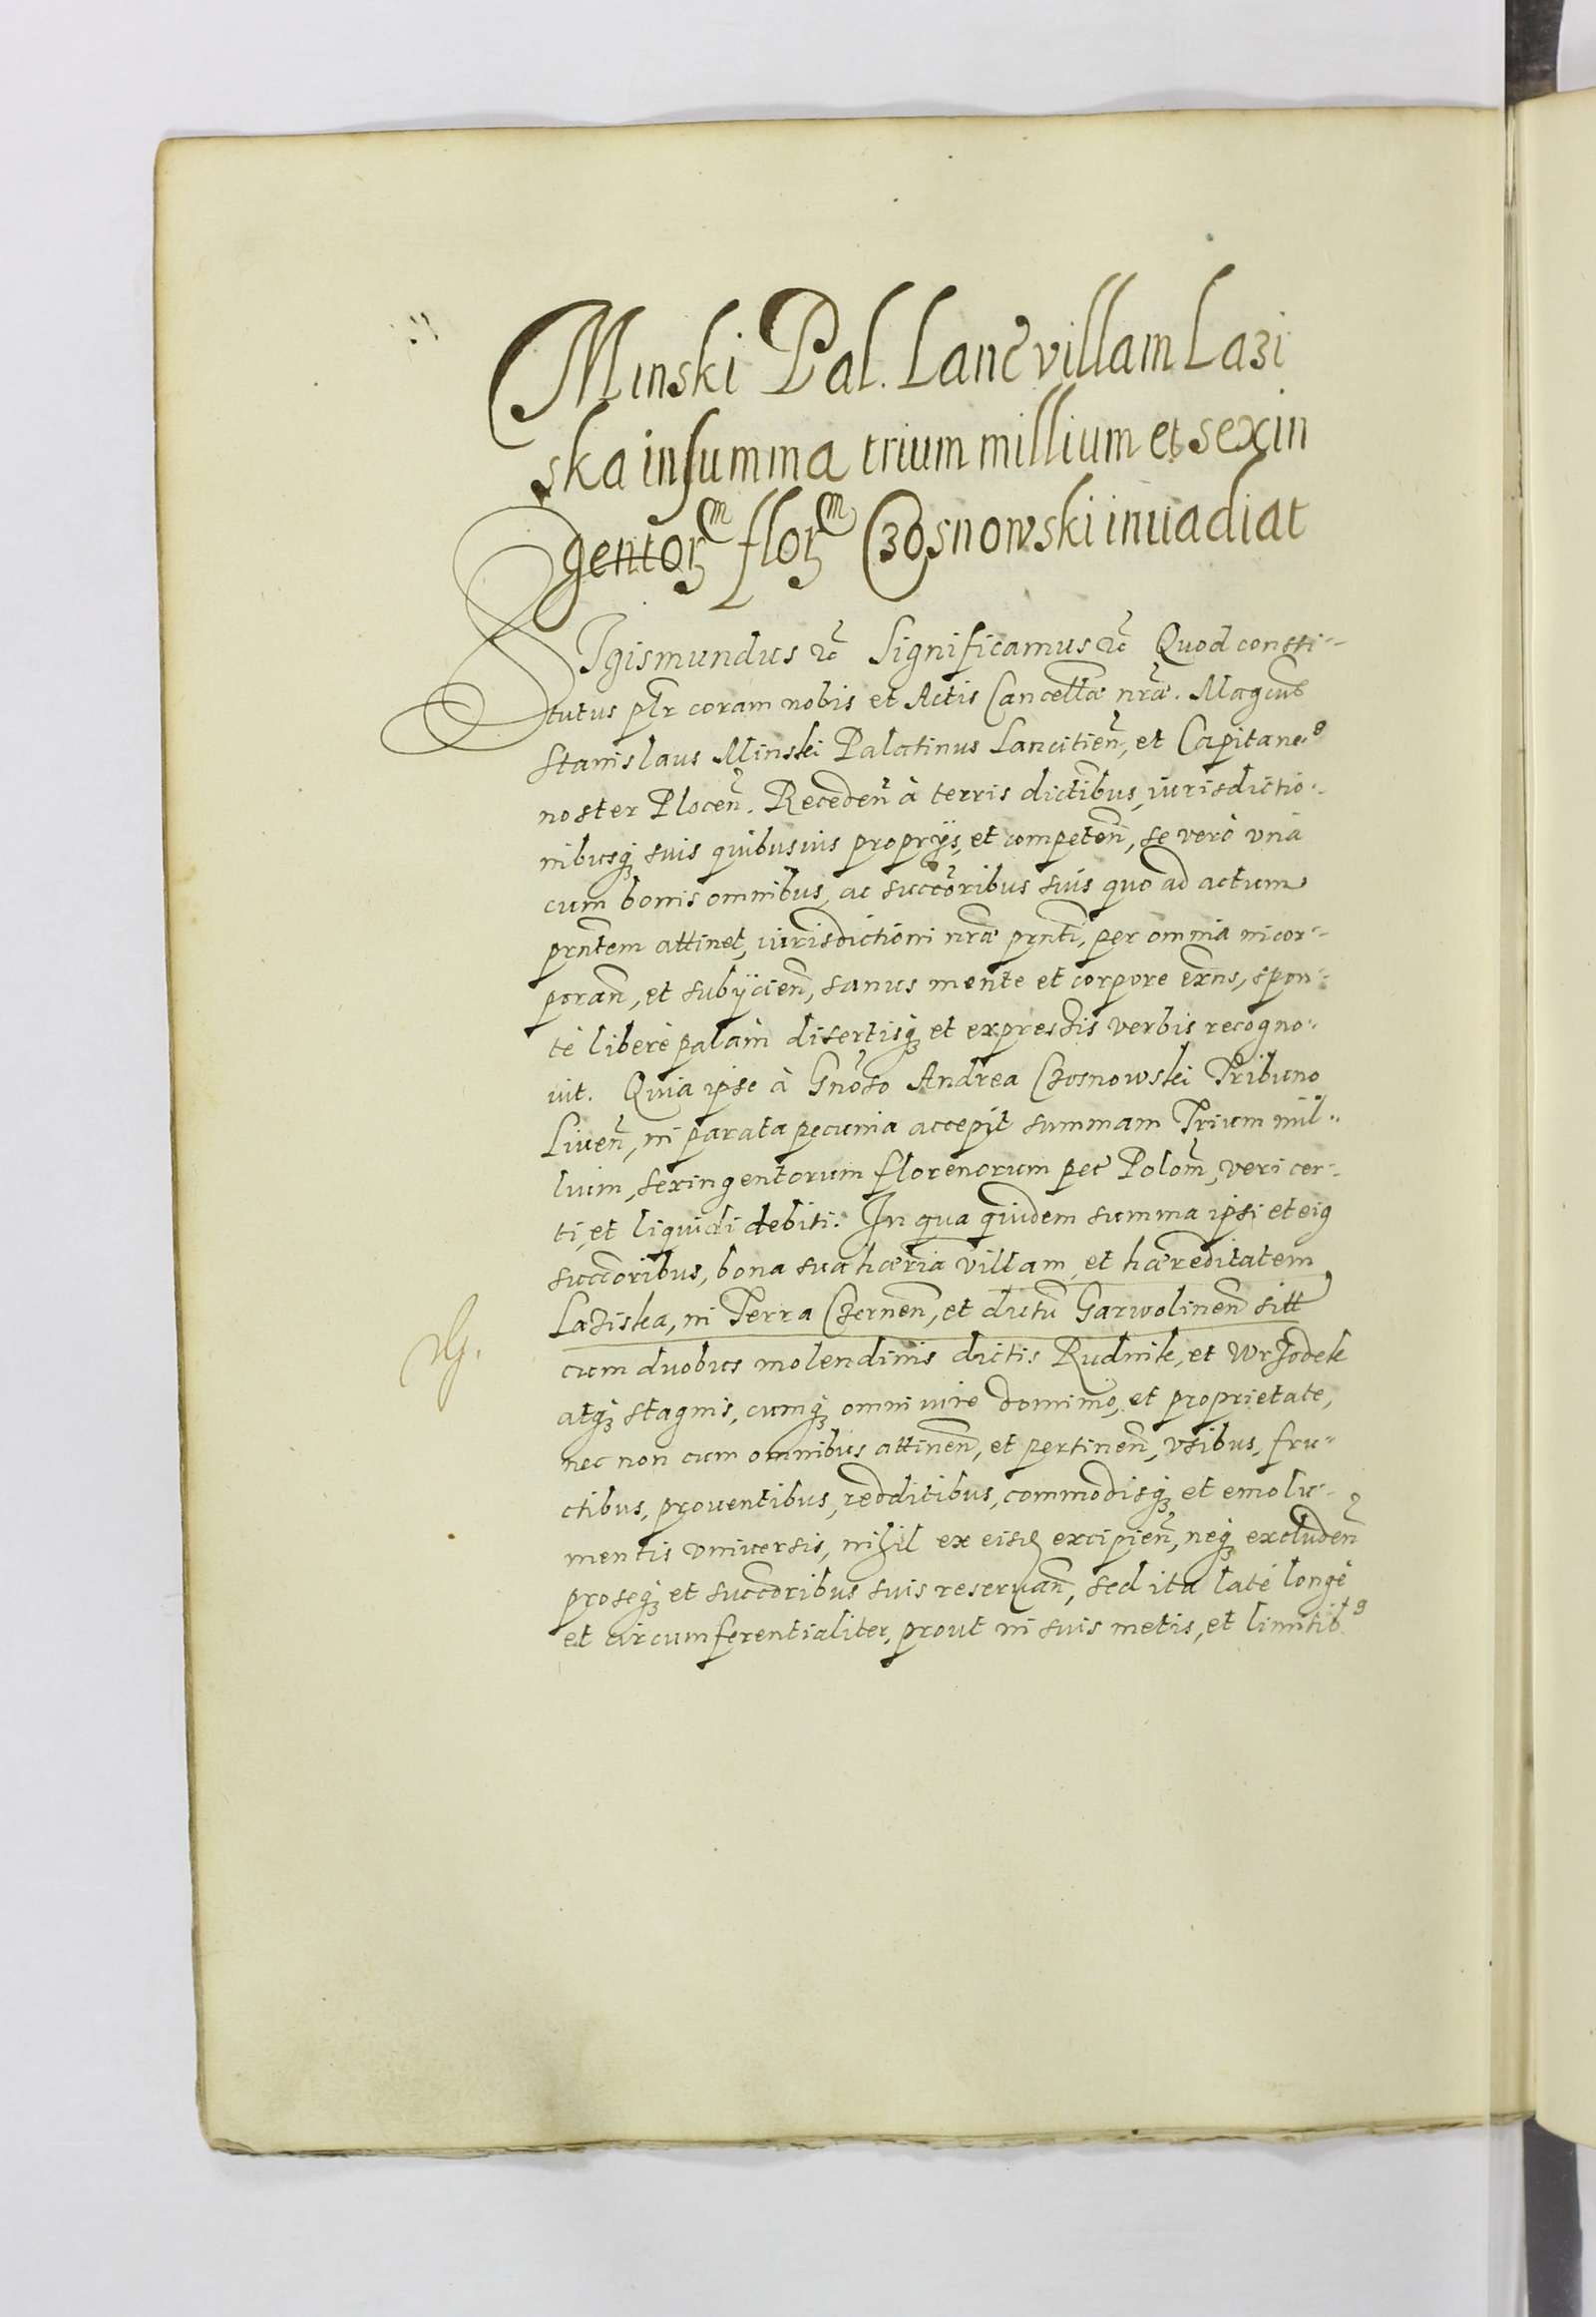 Minski Pal. Lanc̃ villam Lazi
ska in summa trium millium et sexin
gentorᵐ florᵐ Czosnowski inuadiat
SIgismundus ꝛc̃ Significamus ꝛc̃ Quod consti-
tutus pl̃r coram nobis et Actis Cancellæ nr̃æ. Magcus
Stanislaus Minski Palatinus Lancitien̄, et Capitaneꝰ
noster Plocen̄. Receden̄ à terris dictibus, iurisdictio-
nibusq́ꝫ suis quibusuis proprijs, et competen̄, se verò vnà
cum bonis omnibus, ac succoribus suis quo ad actum
prñtem attinet, iurisdictioni nr̃æ prñti, per omnia incor-
poran̄, et subijcien̄, sanus mente et corpore exn̄s, spon-
tè liberè palàm disertisq́ꝫ et expressis verbis recogno-
uit. Quia ipse à Gñoso Andrea Czosnowski Tribuno
Liuen̄, in parata pecunia accepit summam Trium mil-
lium, sexingentorum florenorum pec̃ Polon̄, veri cer-
ti, et liquidi debiti. In qua quidem summa ipsi et eiꝰ
succoribus, bona sua hæria villam, et hæreditatem
Laziska, in Terra Czernen̄, et distũ Garwolinen̄ sitt̃
cum duobus molendinis dictis Rudnik, et Wrzodek
atq́ꝫ stagnis, cumq́ꝫ omni iure dominio, et proprietate,
nec non cum omnibus attinen̄, et pertinen̄, vsibus, fru-
ctibus, prouentibus, redditibus, commodisq́ꝫ et emolu-
mentis vniuersis, nihil ex eisd̃ excipien̄, neq́ꝫ excluden̄
pro seq́ꝫ et succoribus suis reseruan̄, sed ita latè longè
et circumferentialiter, prout in suis metis, et limitibꝰ